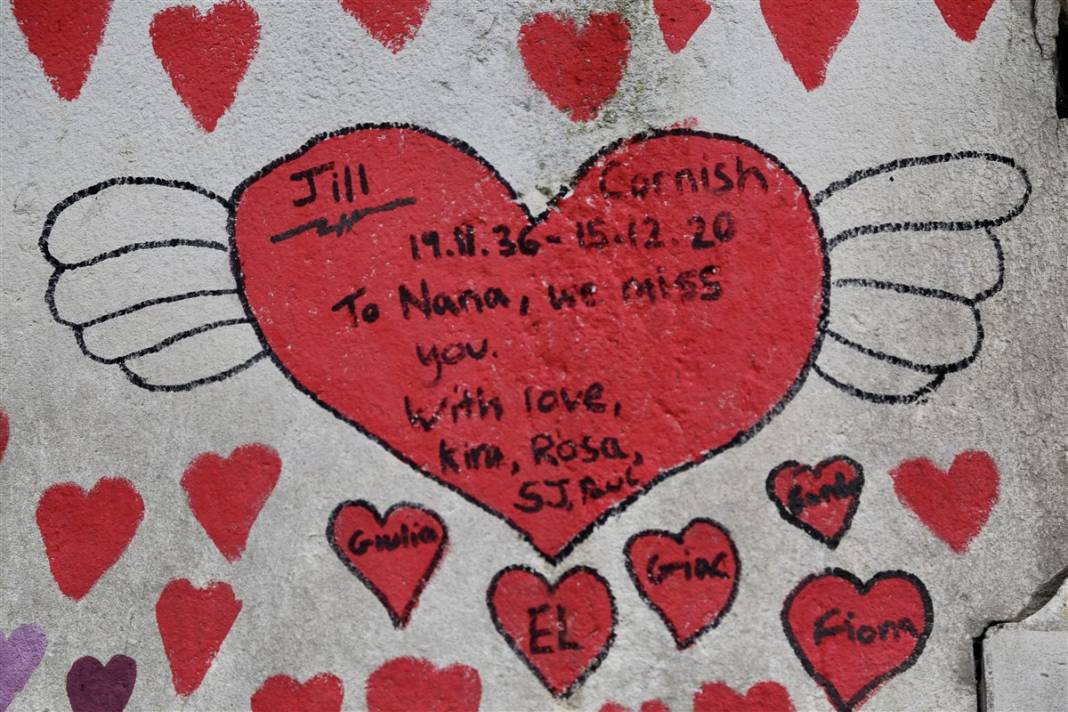 Jill Cornish
19.11.36 - 15.12.20
To Nana, we miss
you.
With love,
Kira, Rosa,
SJ, Paul
Giulia
EL
Giac
Fiona